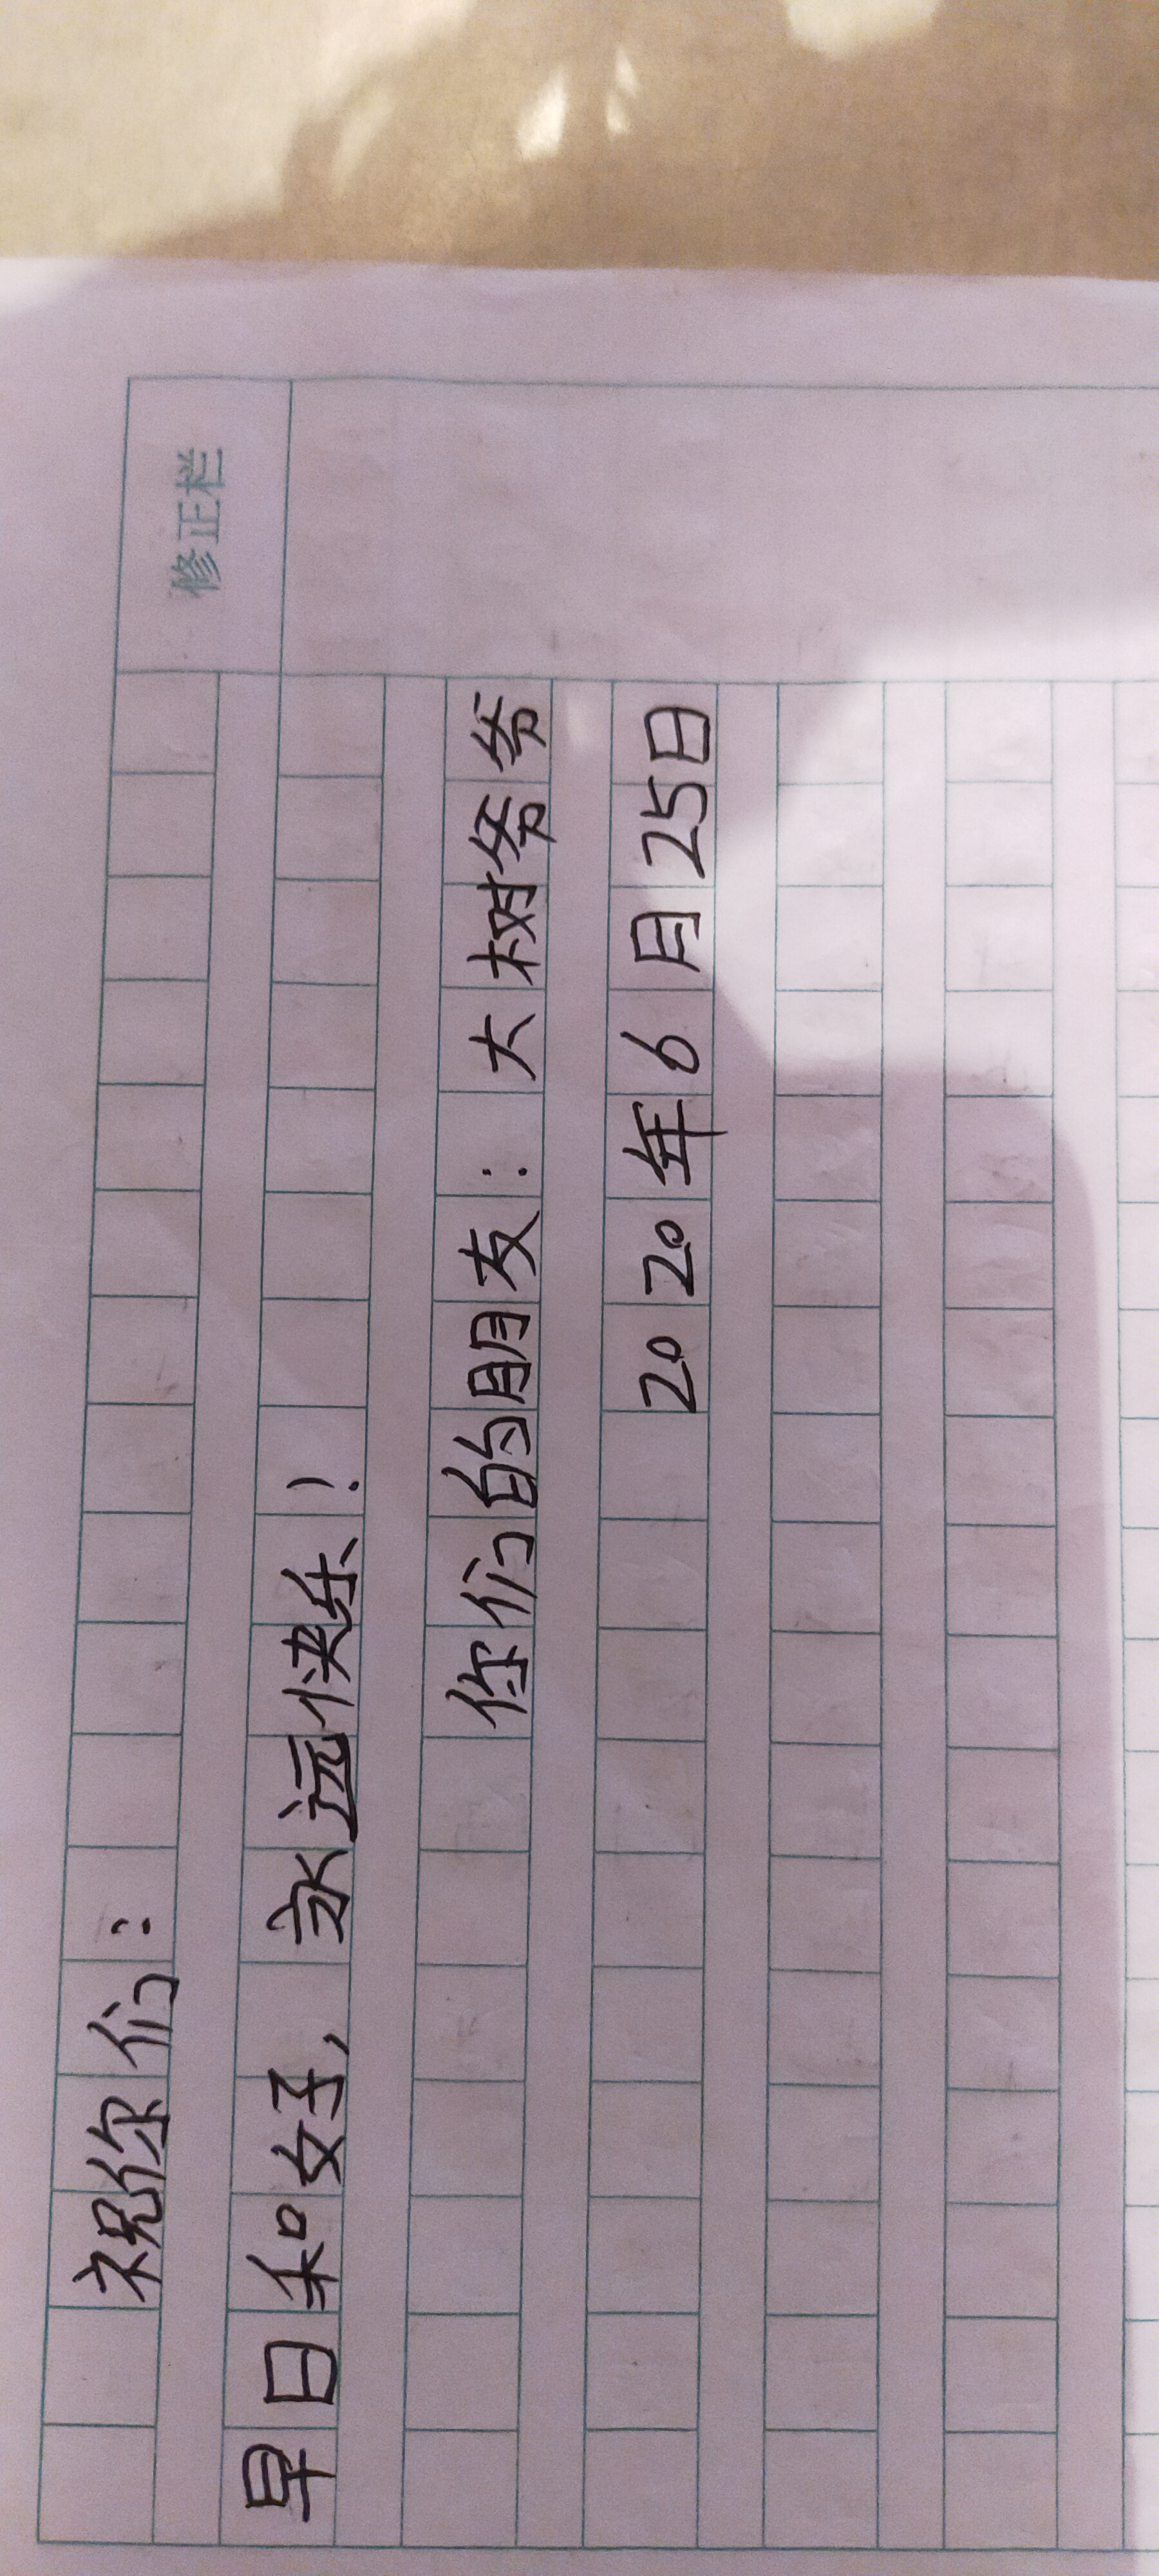 祝你们：
早日和好，永远快乐！
你们的朋友：大树爷爷
2020年6月25日
修正栏